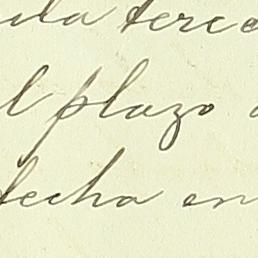 ula terce
l plazo
fecha en